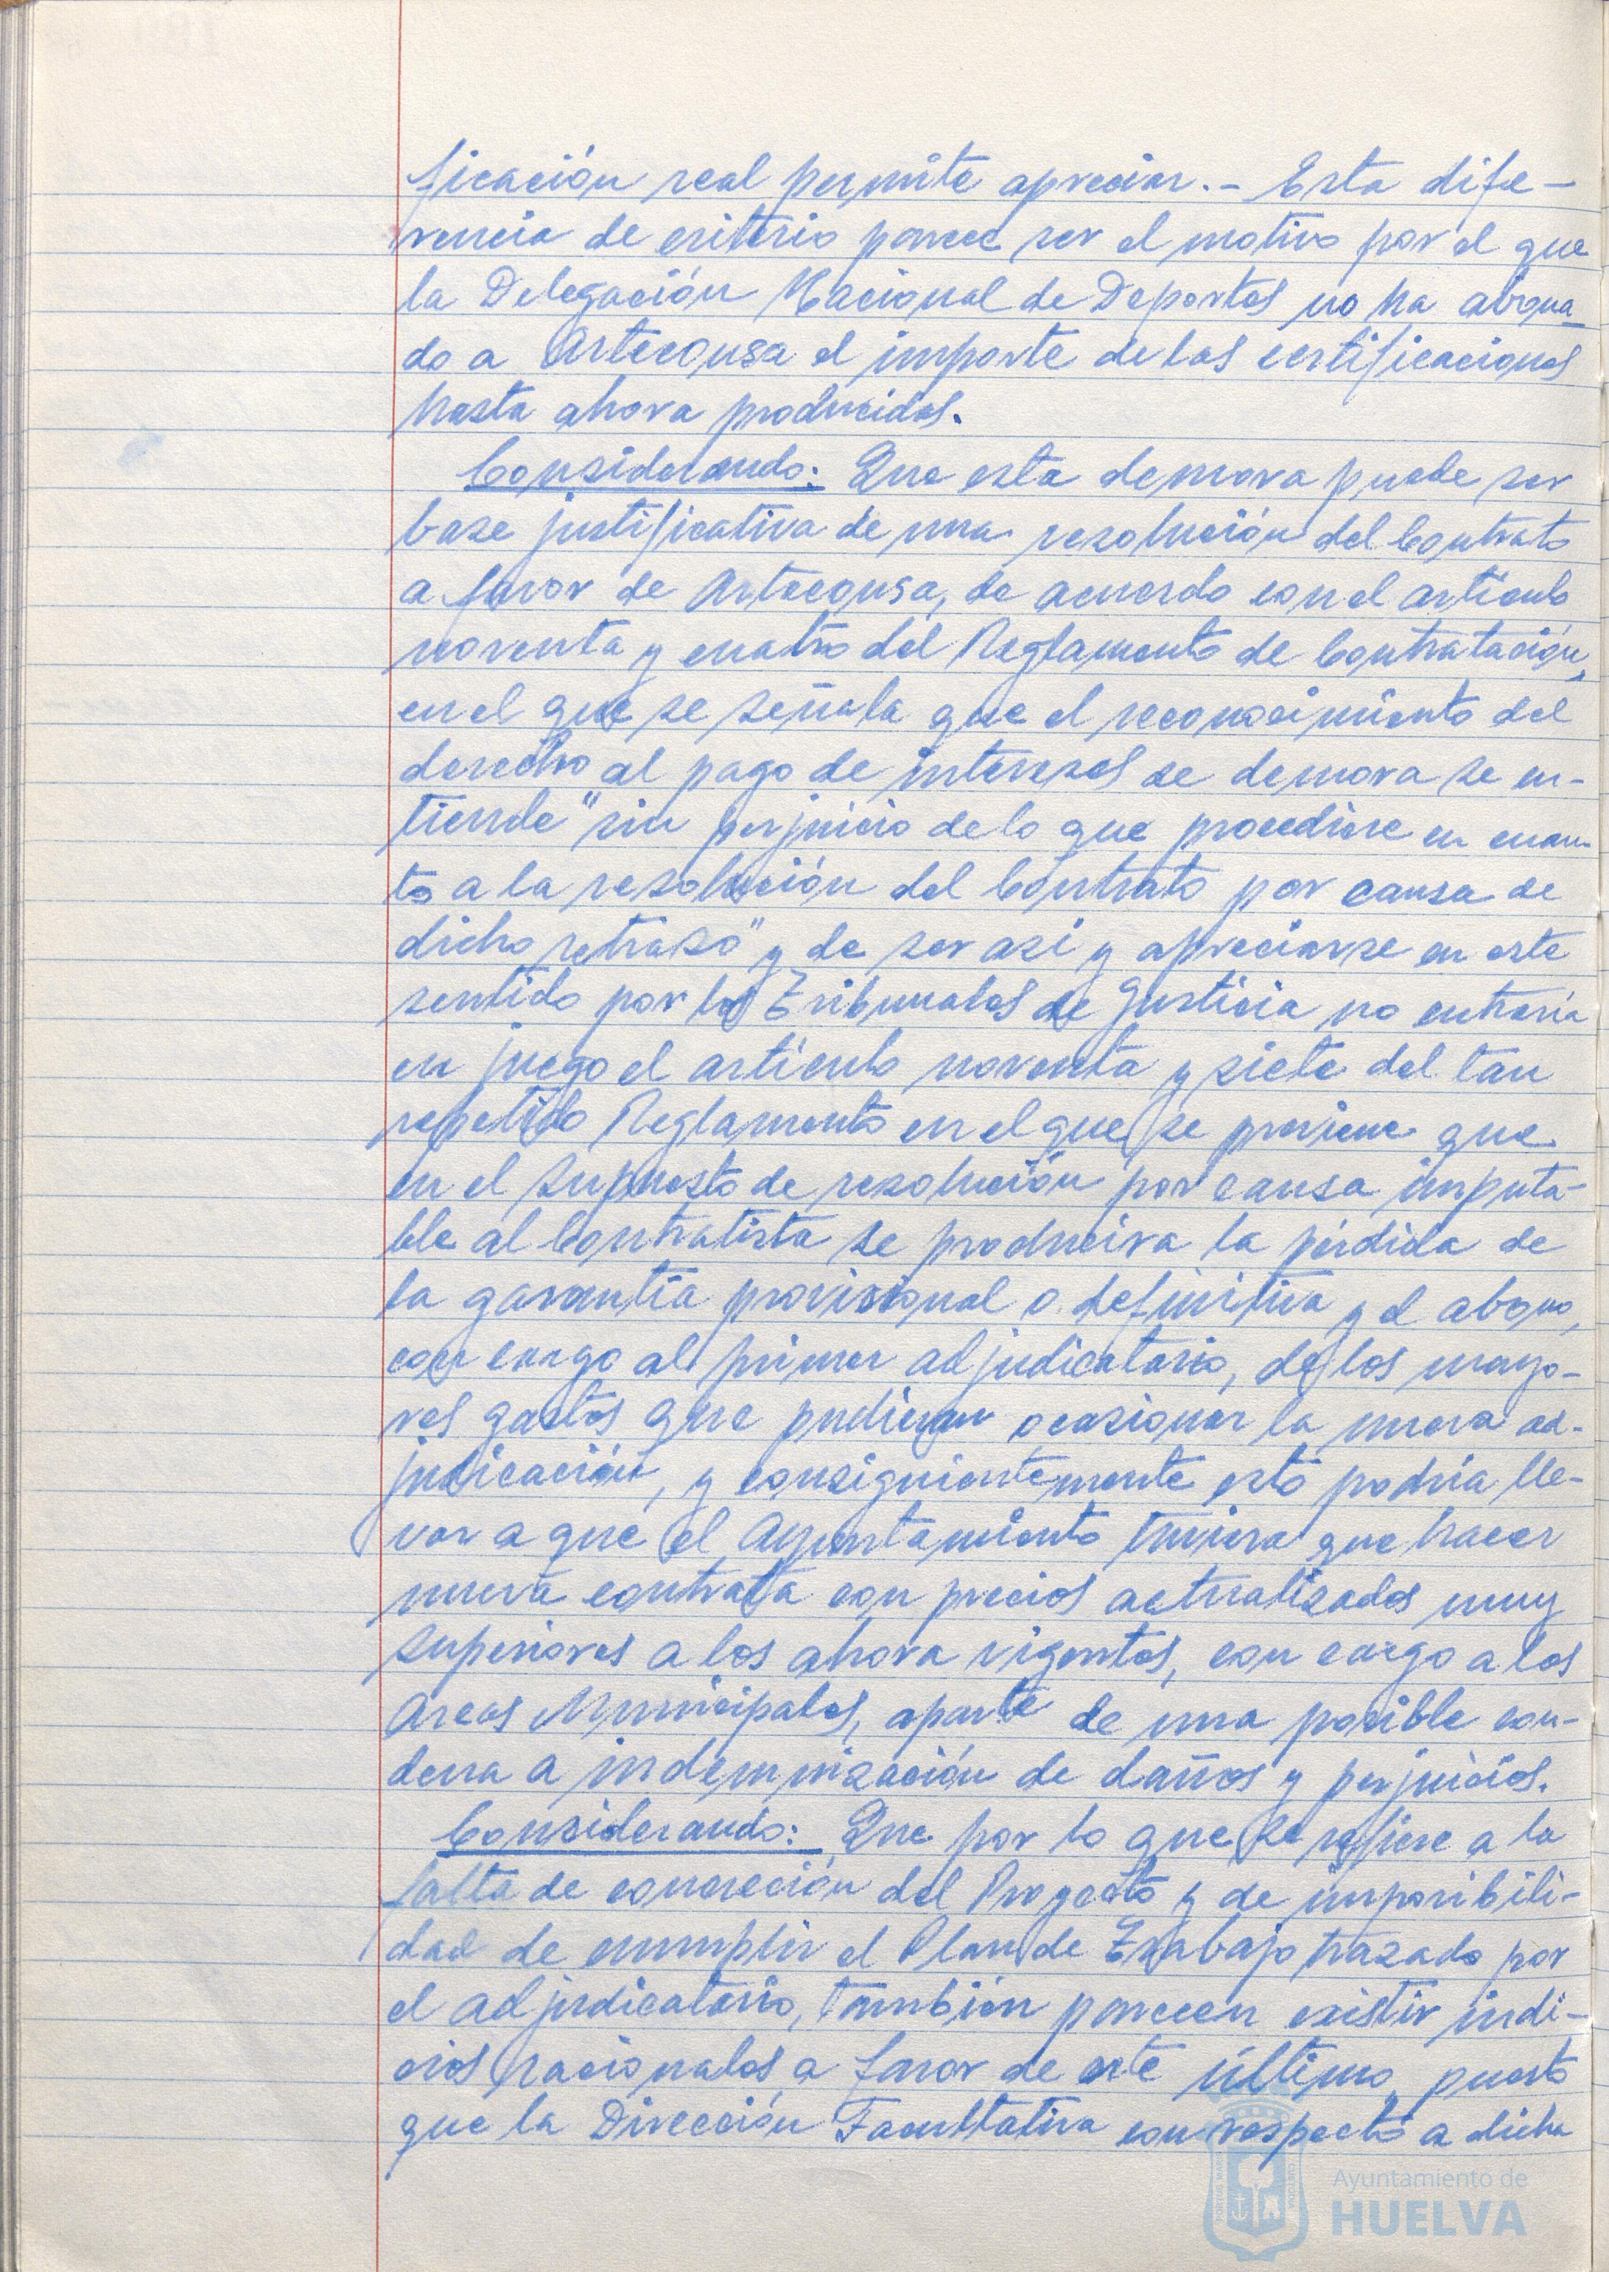 ficación real permite apreciar.- Esta dife-
rencia de criterio parece ser el motivo por el que
la Delegación Nacional de Deportes no ha abona-
do a Artecousa el importe de las certificaciones
hasta ahora producidas.
Considerando: Que esta demora puede ser
base justificativa de una resolución del Contrato
a favor de Artecousa, de acuerdo con el artículo
noventa y cuatro del Reglamento de Contratación,
en el que se señala que el reconocimiento del
derecho al pago de intereses de demora se en-
tiende "sin perjuicio de lo que procediere en cuan-
to a la resolución del Contrato por causa de
dicho retraso" y de ser asi y apreciarse en este
sentido por los Tribunales de Justicia no entraría
en juego el artículo noventa y siete del tan
repetido Reglamento en el que se previene que
en el supuesto de resolución por causa imputa-
ble al Contratista se producirá la pérdida de
la garantía provisional o definitiva y el abono,
con cargo al primer adjudicatario, de los mayo-
res gastos que pudieran ocasionar la nueva ad-
judicación, y consiguientemente esto podría lle-
var a que el Ayuntamiento tuviera que hacer
nueva contrata con precios actualizados muy
superiores a los ahora vigentes, con cargo a las
Arcas Municipales, aparte de una posible con-
dena a indemnización de daños y perjuicios.
Considerando: Que por lo que se refiere a la
falta de concreción del Proyecto y de imposibili-
dad de cumplir el Plan de Trabajo trazado por
el adjudicatario, también parecen existir indi-
cios racionales a favor de este último, puesto
que la Dirección Facultativa con respecto a dicha
Ayuntamiento de
HUELVA